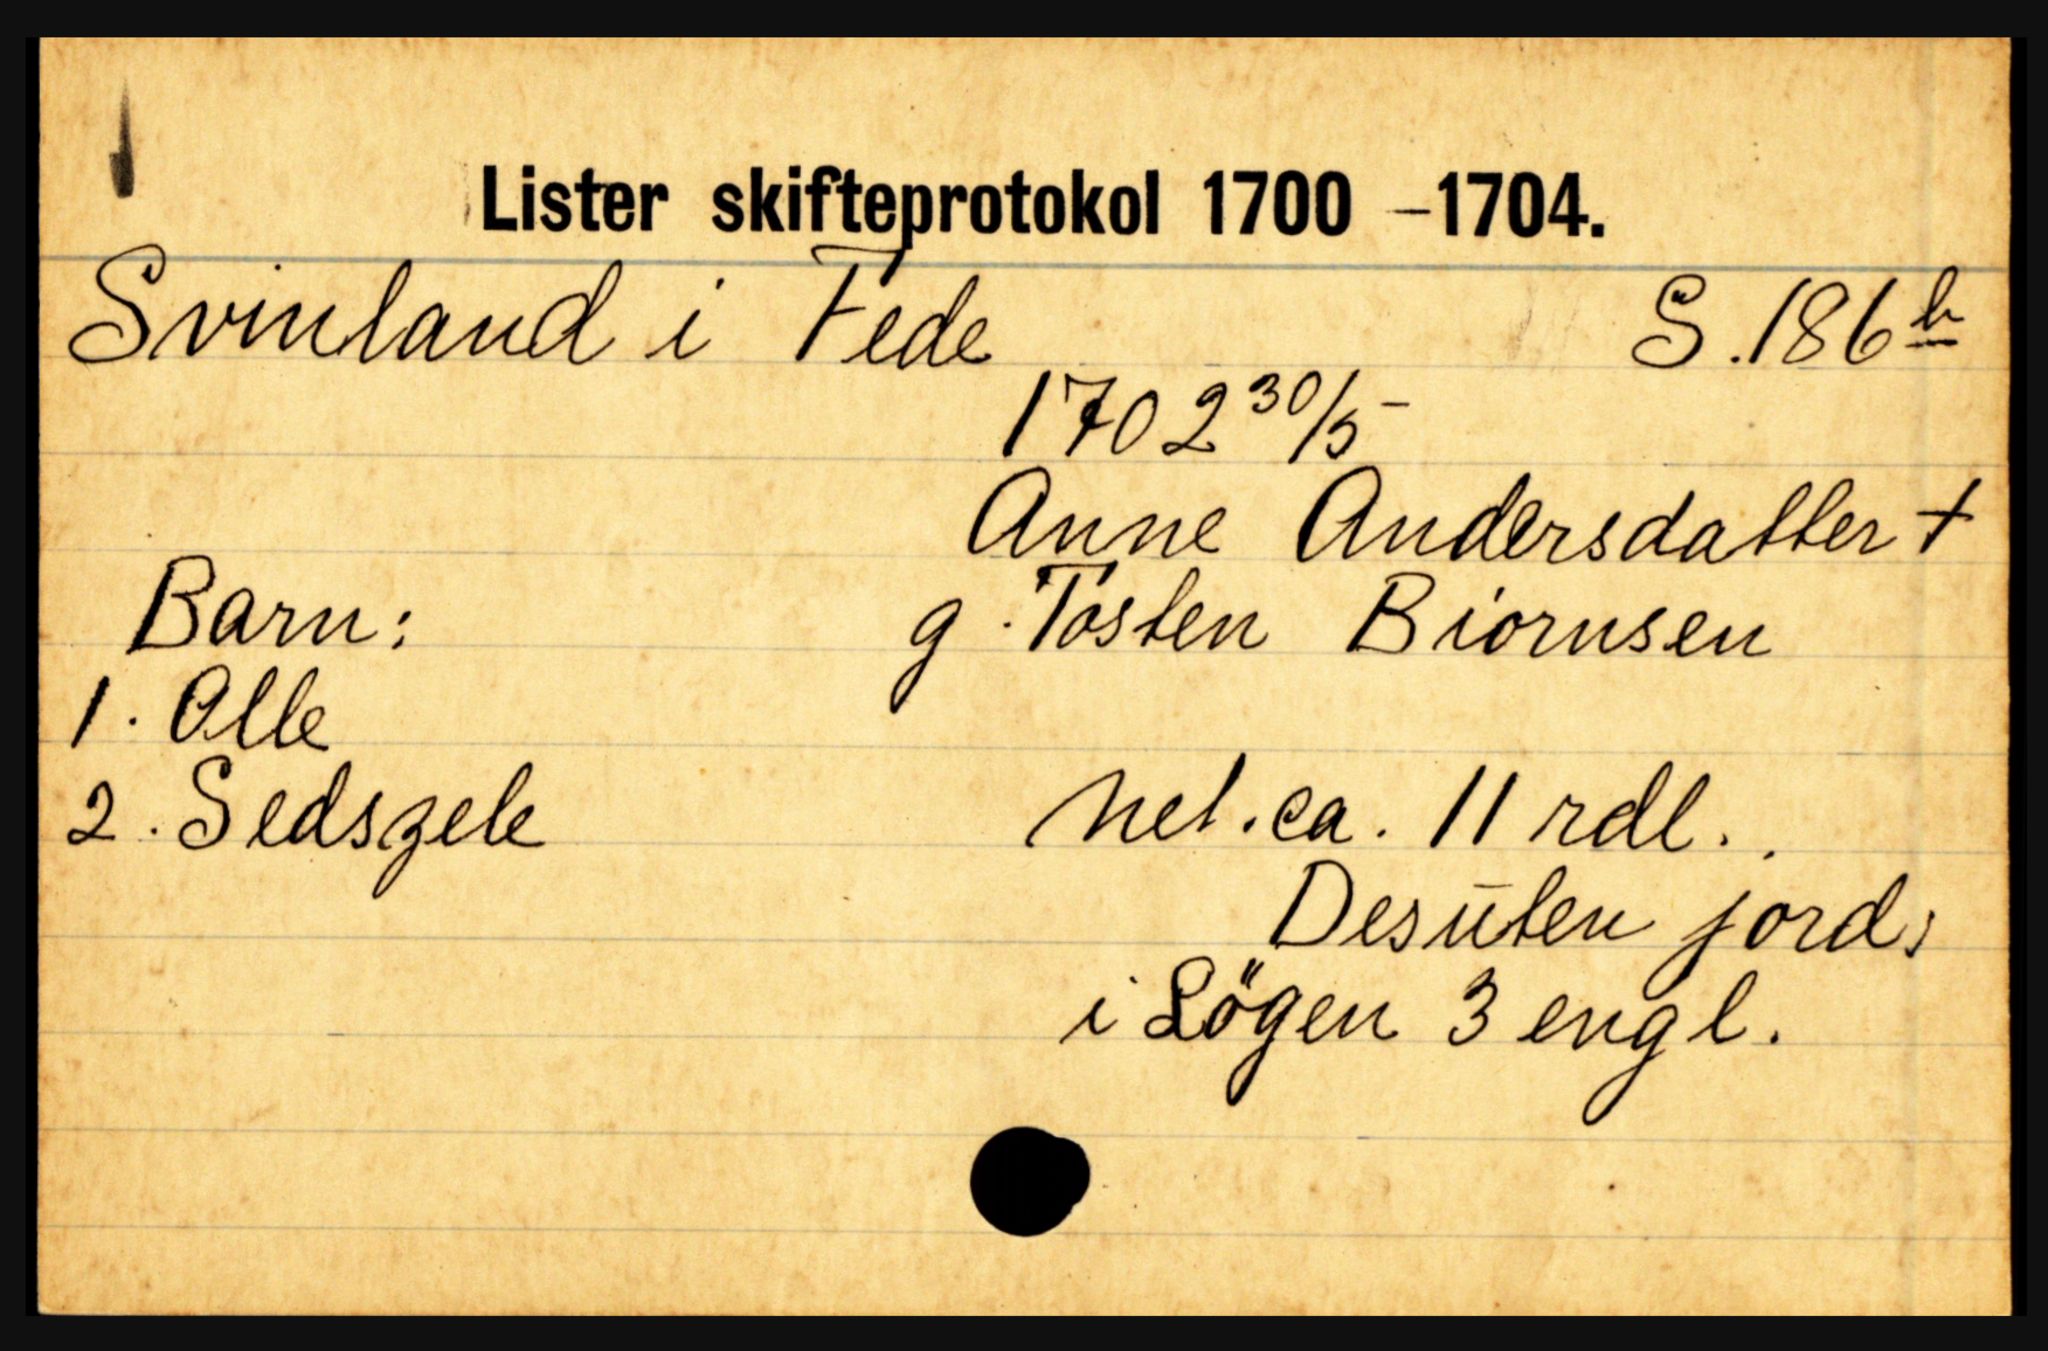 Lister skifteprotokol 1700 -1704.
Svinland i Fede S. 186 b
1702 30/5-
Anne Andersdatter +
Barn: g. Tosten Biornsen
1. Olle
2. Sedszele net. ca. 11 rdl.
Desuten jord,
i Lögen 3 engl.